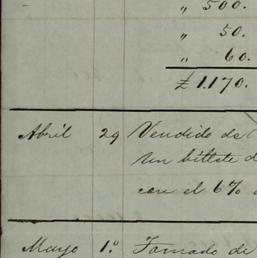 " 500.
" 50.
" 60.
£ 1.170.
Abril 29 Vendido de
un billete d
con el 6%
Mayo 1.º Tomado de